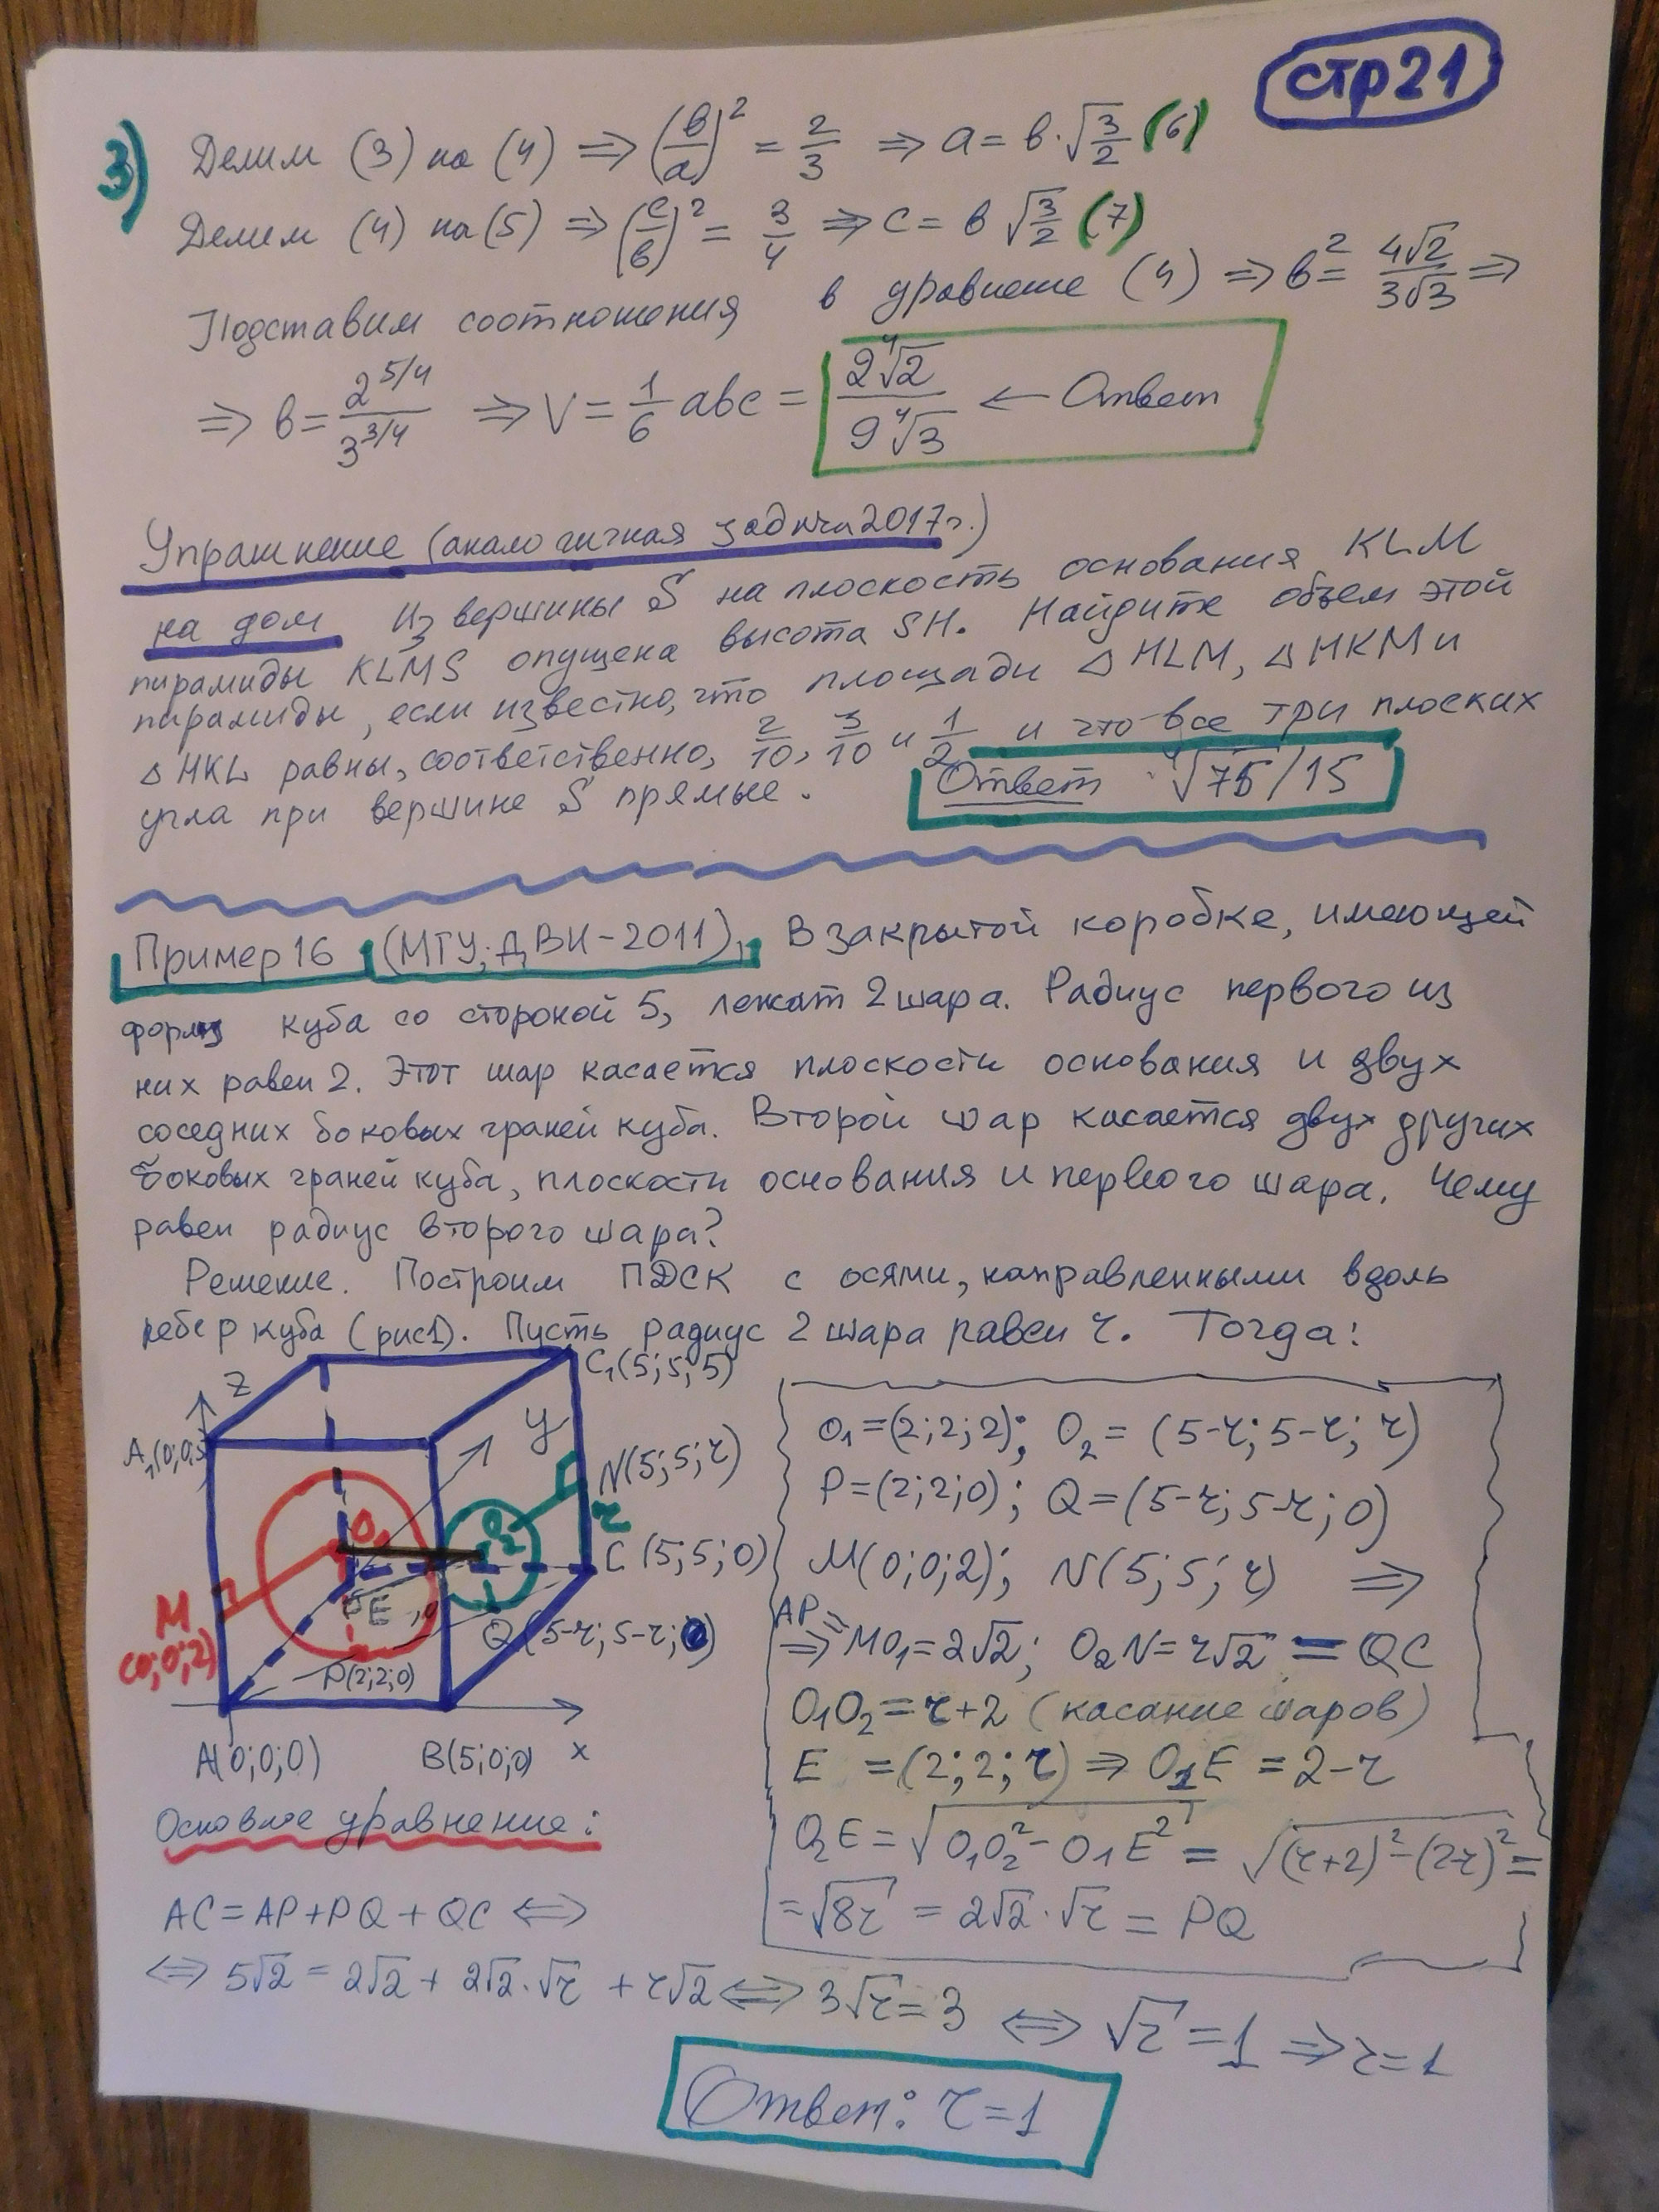 стр 21
3) Делим (3) на (4) ⟹ (b/a)² = 2/3 ⟹ a = b·√(3/2) (6)
Делим (4) на (5) ⟹ (c/b)² = 3/4 ⟹ c = b √(3/2) (7)
Подставим соотношения в уравнение (4) ⟹ b² = 4√2/3√3 ⟹
⟹ b = 2^(5/4)/3^(3/4) ⟹ V = 1/6 abc = 2∜2/9∜3 ← Ответ
Упражнение (аналогичная задача 2017г.)
на дом Из вершины S на плоскость основания KLM
пирамиды KLMS опущена высота SH. Найдите объем этой
пирамиды, если известно, что площади △HLM, △HKM и
△HKL равны, соответственно, 2/10, 3/10 и 1/2 и что все три плоских
угла при вершине S прямые. Ответ ∜75/15
Пример 16 (МГУ; ДВИ-2011). В закрытой коробке, имеющей
форму куба со стороной 5, лежат 2 шара. Радиус первого из
них равен 2. Этот шар касается плоскости основания и двух
соседних боковых граней куба. Второй шар касается двух других
боковых граней куба, плоскости основания и первого шара. Чему
равен радиус второго шара?
Решение. Построим ПДСК с осями, направленными вдоль
ребер куба (рис1). Пусть радиус 2 шара равен r. Тогда:
C₁(5; 5; 5)
z
A₁(0;0;5)
y
N(5; 5; r)
O₁
O₂
r
C (5; 5; 0)
M
(0; 0; 2)
E
Q (5-r; 5-r; 0)
P(2; 2; 0)
A(0; 0; 0) B(5; 0; 0) x
O₁ = (2; 2; 2); O₂ = (5-r; 5-r; r)
P = (2; 2; 0); Q = (5-r; 5-r; 0)
M(0; 0; 2); N(5; 5; r) ⟹
AP =
⟹ MO₁ = 2√2; O₂N = r√2 = QC
O₁O₂ = r+2 (касание шаров)
E = (2; 2; r) ⟹ O₁E = 2-r
O₂E = √(O₁O₂² - O₁E²) = √((r+2)² - (2-r)²) =
= √8r = 2√2·√r = PQ
Основное уравнение:
AC = AP + PQ + QC ⟺
⟺ 5√2 = 2√2 + 2√2·√r + r√2 ⟺ 3√r = 3 ⟺ √r = 1 ⟹ r = 1
Ответ: r = 1